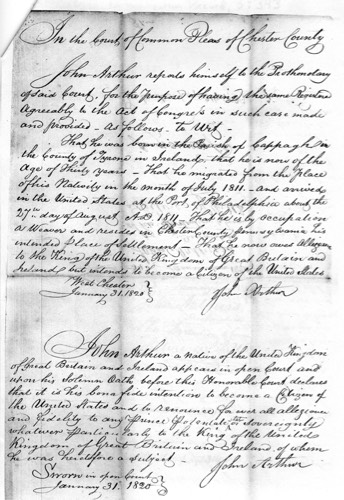 In the Court of Common Pleas of Chester County
John Arthur reports himself to the Prothonotary
of said Court, for the purpose of having the same
Agreeably to the Act of Congress in such case made
and provided – As follows – to Wit –
That he was born in the Parish of Cappagh in
the County of Tyrone in Ireland, that he is now of the
Age of Thirty years – That he migrated from the Place
of his Nativity in the month of July 1811 – and arrived
in the United States at the Port of Philadelphia about the
27th day of August AD. 1811 – That he is by occupation
a Weaver and resides in Chester County Pennsylvania his
intended Place of Settlement – That he now owes Allegiance
to the King of the United Kingdom of Great Britain and
Ireland but intends to become a Citizen of the United States
West Chester
January 31. 1820
John Arthur
John Arthur a native of the United Kingdom
of Great Britain and Ireland appears in open Court and
upon his Solemn Oath before this Honorable Court declares
that it is his bona fide intention to become a Citizen of
the United States and to renounce forever all allegiance
and fidelity to any Prince Potentate or Sovereignty
whatever particularly to the King of the United
Kingdom of Great Britain and Ireland of whom
he was heretofore a subject –
John Arthur
Sworn in open Court
January 31. 1820